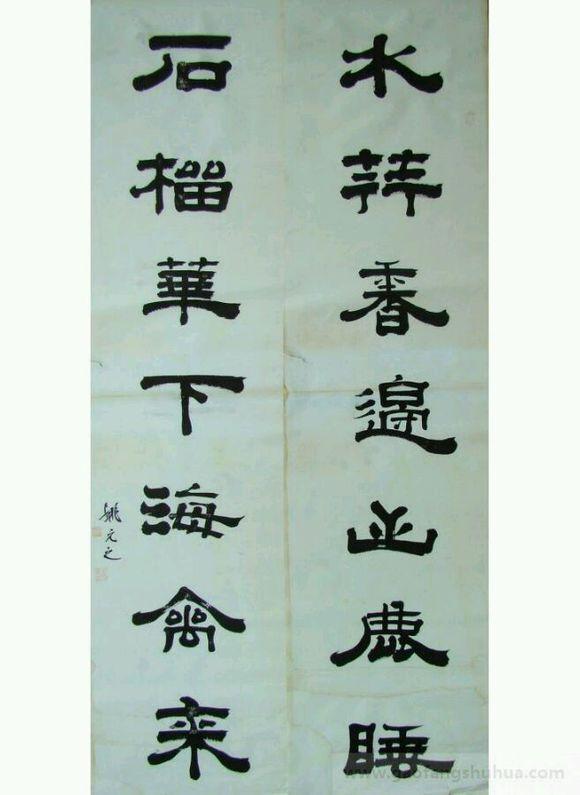 水荇香邊山鹿睡
石榴華下海禽来
姚元之
www.gaofangshuhua.com